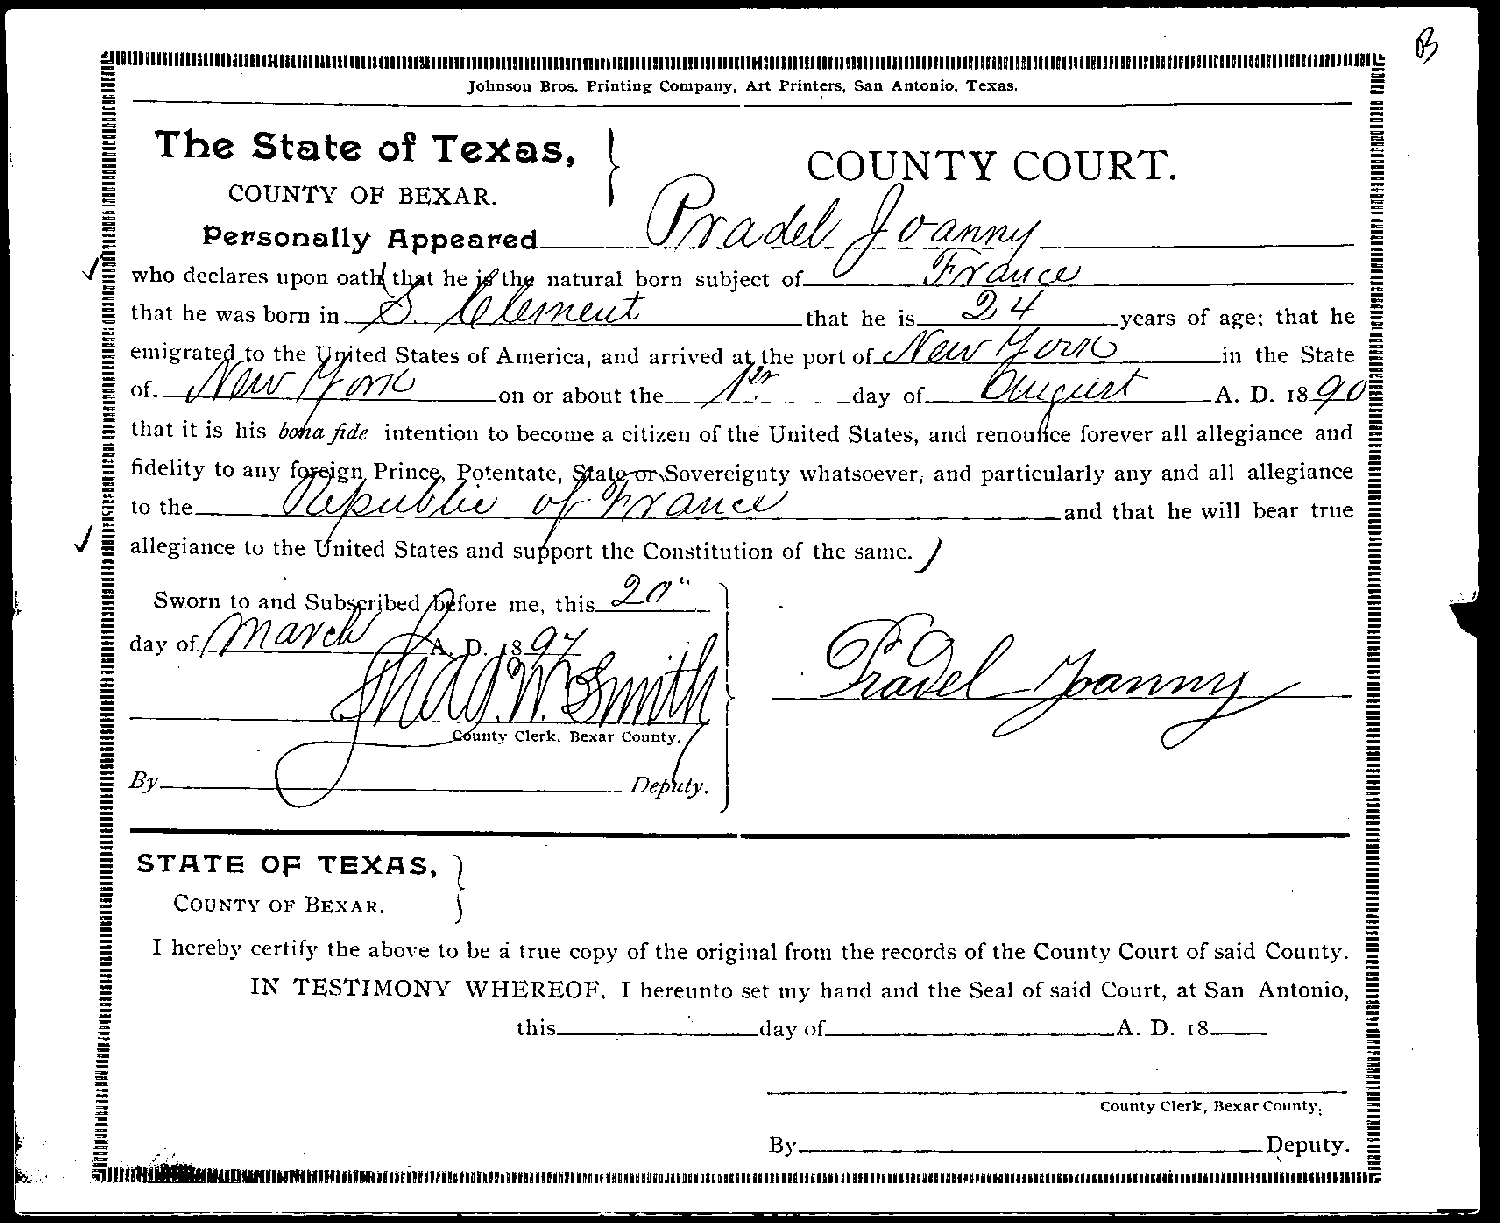 B
Johnson Bros. Printing Company, Art Printers, San Antonio, Texas.
The State of Texas,
COUNTY OF BEXAR.
COUNTY COURT.
Personally Appeared Pradel Joanny
who declares upon oath that he is the natural born subject of France
that he was born in S. Clement that he is 24 years of age; that he
emigrated to the United States of America, and arrived at the port of New York in the State
of New York on or about the 1st day of August A. D. 1890
that it is his bona fide intention to become a citizen of the United States, and renounce forever all allegiance and
fidelity to any foreign Prince, Potentate, State or Sovereignty whatsoever, and particularly any and all allegiance
to the Republic of France and that he will bear true
allegiance to the United States and support the Constitution of the same.
Sworn to and Subscribed before me, this 20"
day of March A. D. 1897
Thad. W. Smith
County Clerk, Bexar County.
By Deputy.
Pradel Joanny
STATE OF TEXAS,
COUNTY OF BEXAR.
I hereby certify the above to be a true copy of the original from the records of the County Court of said County.
IN TESTIMONY WHEREOF, I hereunto set my hand and the Seal of said Court, at San Antonio,
this day of A. D. 18
County Clerk, Bexar County,
By Deputy.